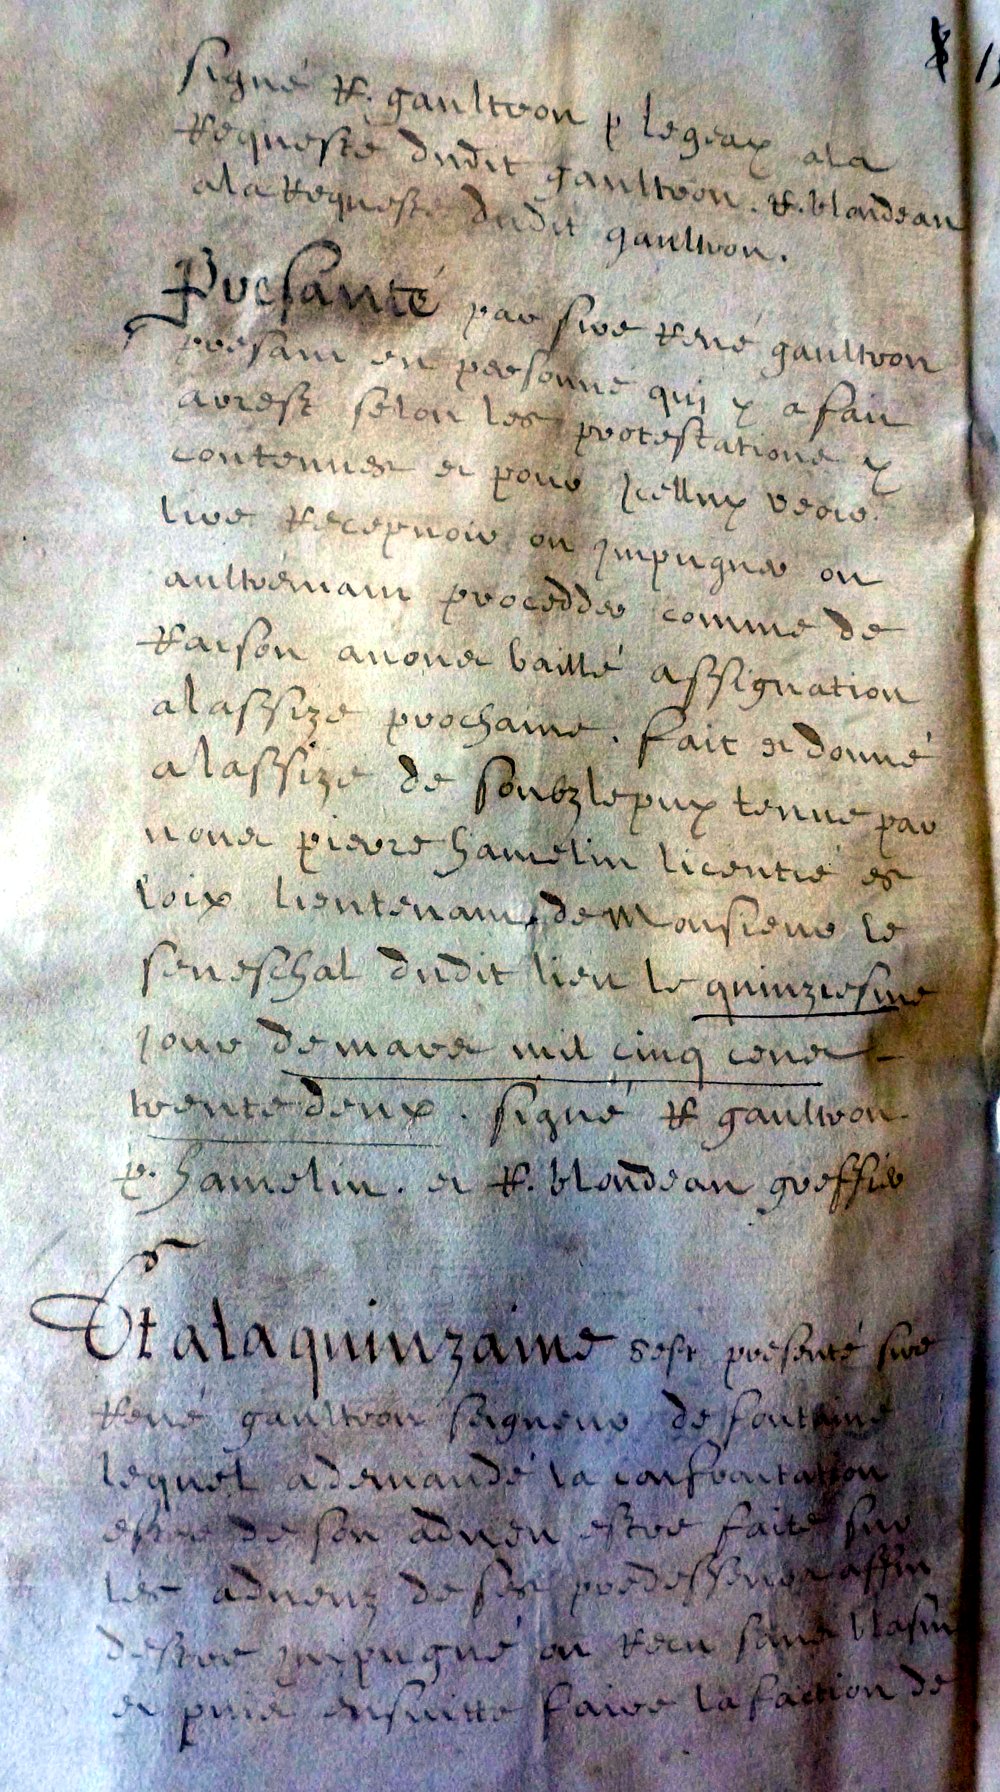 signé R. gaultron p legeay ala
Requeste dudit gaultron. R. blondeau
ala Requeste dudit gaultron.
Presanté par sire René gaultron
presant en personne qui y a fait
arrest selon les protestations y
contenues et pour Icelluy veoir
lire Recepvoir ou Impugner ou
aultremant procedder comme de
Raison avons baillé assignation
alassize prochaine. fait et donné
alassize de soubzlepuy tenue par
nous pierre hamelin licentié es
loix lieutenant de Monsieur le
seneschal dudit lieu le quinziesme
Jour de mars mil cinq cens
trente deux. signé R gaultron
p. hamelin. et R. blondeau greffier
Et ala quinzaine sest presenté sire
René gaultron seigneur de fontaine
lequel a demandé la confrontation
estre de son adveu estre faite sur
les adveuz de ses predesseurs affin
destre Impugné ou Receu sans blasme
et puis ensuitte faire la faction de